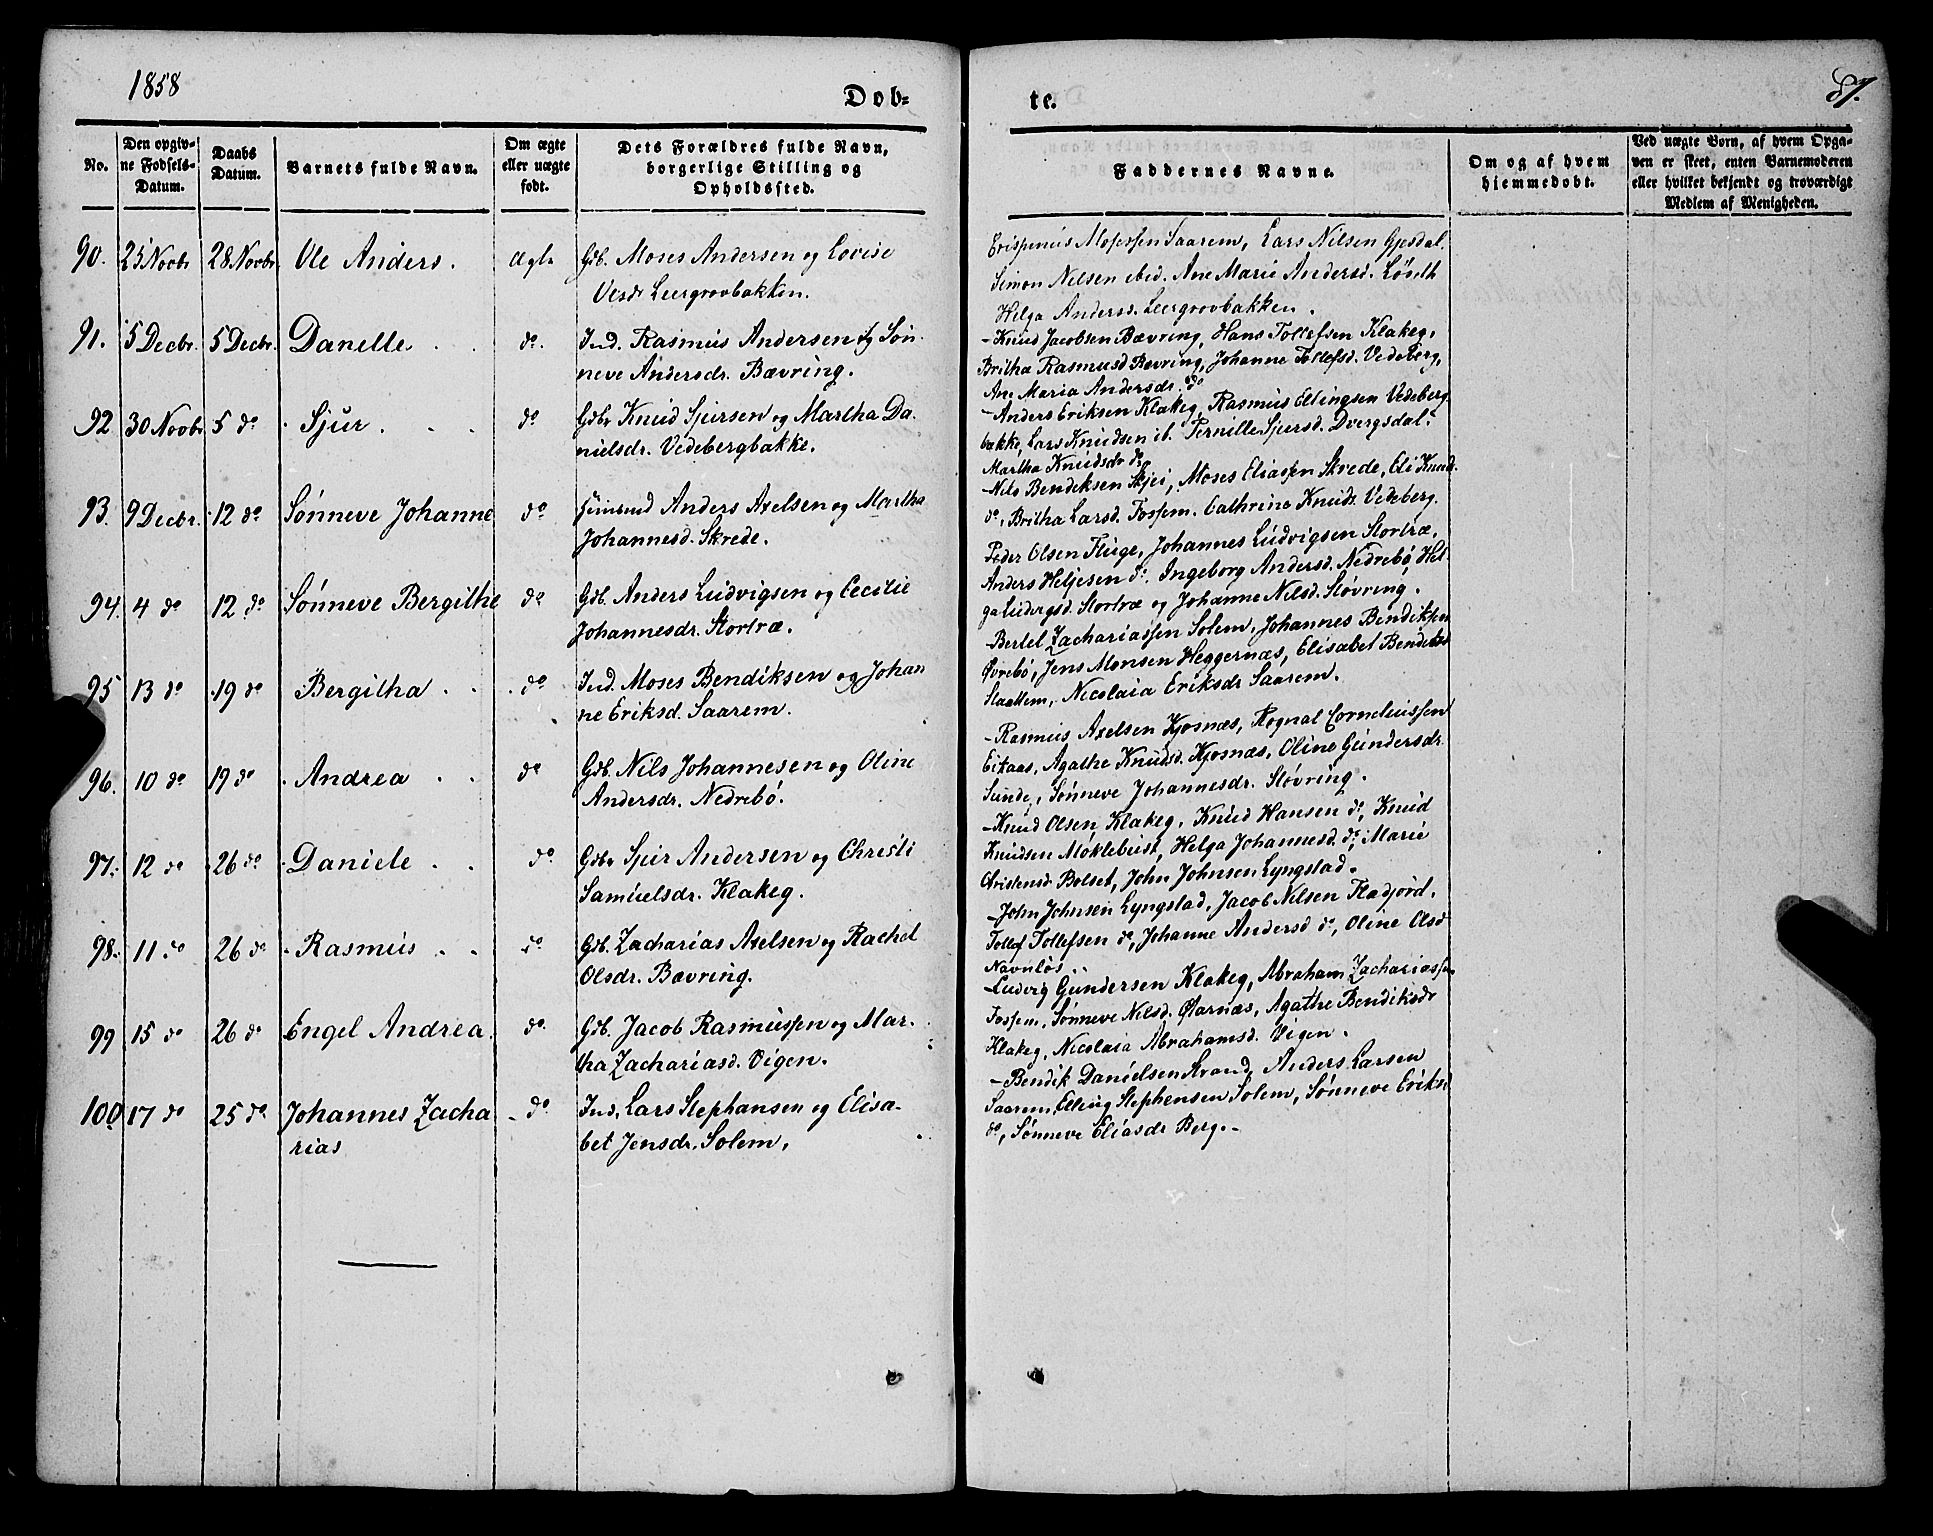 1858
Dob=
te.
87.
No.
Den opgiv-
ne Fodsels-
Datum.
Daabs
Datum.
Barnets fulde Navn.
Om ægte
eller uægte
fodt.
Dets Forældres fulde Navn,
borgerlige Stilling og
Opholdssted.
Faddernes Navne.
Om og af hvem
hjemmedobt.
Ved uægte Born, af hvem Opga-
ven er skeet, enten Barnemoderen
eller hvilket bekjendt og troværdigt
Medlem af Menigheden.
90. 25 Novbr 28 Novbr. Ole Anders. Ægte Gdb. Moses Andersen og Lovise
Leergrovbakken.
Mosessen Saarem, Lars Nilsen Gjesdal.
Simon Nilsen ibid. Ane Marie Andersd.
Helga Andersd. Leergrovbakken.
91. 5 Decbr. 5 Decbr. Danelle . . do. Ind. Rasmus Andersen og Søn-
neve Andersdr. Bævring.
-Knud Jacobsen Bævring, Hans Tollefsen Klakeg,
Britha Rasmusd Bævring, Johanne Tollefsd. Vedeberg,
Ane Maria Andersdr. do
92 30 Novbr. 5 do Sjur . . . do Gdbr Knud Sjursen og Martha Da-
nielsdr. Vedebergbakke.
-Anders Eriksen Klakeg, Rasmus Ellingsen Vedeberg-
bakke, Lars Knudsen ib. Pernille Sjursd. Dvergsdal.
Martha Knudsdr do
93. 9 Decbr. 12 do Sønneve Johanne do Huusmd Anders Axelsen og Martha
Johannesd. Skrede.
-Nils Bendiksen Skjei, Moses Eliassen Skrede, Eli Knud.
do, Britha Larsd. Fossem. Cathrine Knudr. Vedeberg.
94. 4 do 12 do Sønneve Bergithe do Gdb. Anders Ludvigsen og Cecilie
Johannesdr. Stortræ.
Peder Olsen Fluge, Johannes Ludvigsen Stortræ,
Anders Heljesen do, Ingeborg Andersd. Nedrebø, Hel-
ga Ludvigsd. Stortræ og Johanne Nilsd. Støvring.
95 13 do 19 do Bergitha . . do Ind. Moses Bendiksen og Johan
ne Eriksd. Saarem.
-Bertel Zachariassen Solem, Johannes Bendiksen
Øvrebø, Jens Monsen Heggernæs, Elisabet Bendiksd
Nicolaia Eriksdr Saarem.
96. 10 do 19 do Andrea . . do Gdb. Nils Johannesen og Oline
Andersdr. Nedrebø.
-Rasmus Axelsen Kjøsnæs, Rognal Corneliussen
Eikaas, Agathe Knudsd. Kjøsnæs, Oline Gundersdr.
Sunde, Sønneve Johannesdr. Støvring.
97. 12 do 26 do Daniele . . do Gdbr Sjur Andersen og Christi
Samuelsdr. Klakeg.
-Knud Olsen Klakeg, Knud Hansen do, Knud
Knudsen Møklebust, Helga Johannesd. do, Marie
Christensd. Bolset, John Johnsen Lyngstad.
98. 11 do 26 do Rasmus . . do Gdb. Zacharias Axelsen og Rachel
Olsdr. Bævring.
-John Johnsen Lyngstad, Jacob Nilsen Fladjord.
Tollef Tollefsen do, Johanne Andersd do, Oline Olsd
Navnløs..
99 15 do 26 do Engel Andrea. do. Gdb. Jacob Rasmussen og Mar-
tha Zachariasd. Vigen.
-Ludvig Gundersen Klakeg, Abraham Zachariassen
Fossem, Sønneve Nilsd. Øarnæs, Agathe Bendiksdr
Klakeg, Nicolaia Abrahamsd. Vigen.
100 17 do 25 do Johannes Zacha
rias - do Ind. Lars Stephansen og Elisa-
bet Jensdr. Solem,
-Bendik Danielsen Strand, Anders Larsen
Saarem, Elling Stephensen Solem, Sønneve Eriksd
do, Sønneve Eliasdr Berg.-